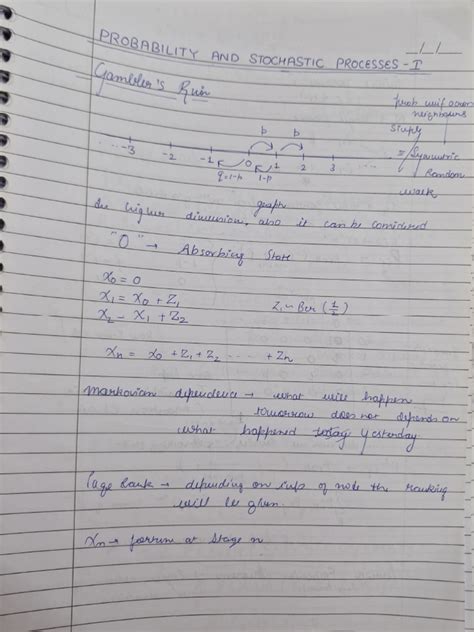 PROBABILITY AND STOCHASTIC PROCESSES - I
Gambler's Ruin
prob unif across
neighbours
Simply
Symmetric
Random
walk
p p
... -3 -2 -1 0 1 2 3 ...
q=1-p 1-p
graph
In higher dimension, also it can be considered
"0" → Absorbing State
X0 = 0
X1 = X0 + Z1 Z1 ~ Ber (1/2)
X2 = X1 + Z2
Xn = X0 + Z1 + Z2 ..... + Zn
Markovian dependence → what will happen
tomorrow does not depends on
what happened today yesterday
Page Rank → depending on imp of node the ranking
will be given.
Xn → fortune at stage n